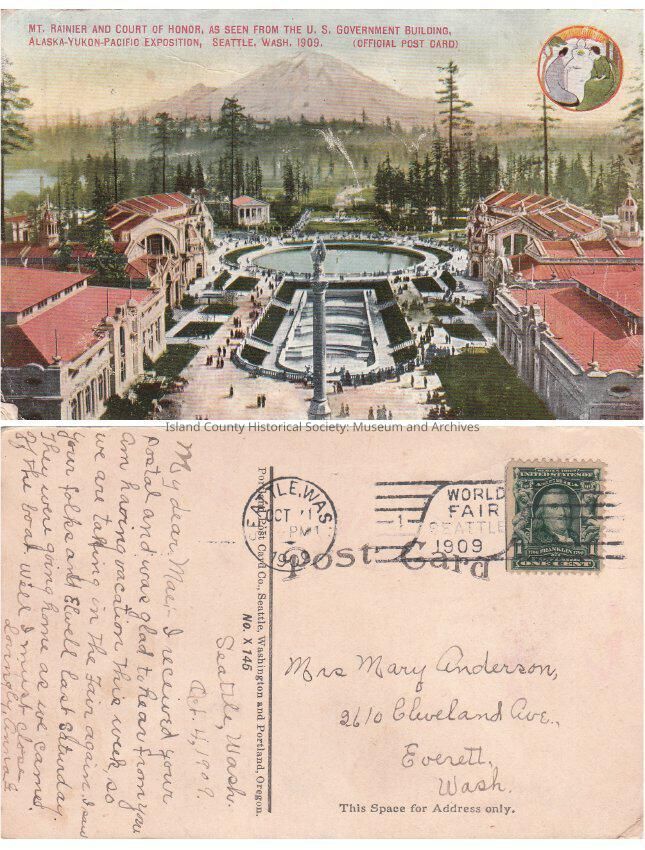 MT. RAINIER AND COURT OF HONOR, AS SEEN FROM THE U. S. GOVERNMENT BUILDING,
ALASKA-YUKON-PACIFIC EXPOSITION, SEATTLE, WASH. 1909. (OFFICIAL POST CARD)
Island County Historical Society: Museum and Archives
Seattle, Wash.
Oct. 4, 1909.
My dear Mae- I received your
postal and was glad to hear from you
am having vacation this week, so
we are taking in the Fair again. I saw
your folks and Elwell last Saturday.
They were going home as we came
off the boat. Well I must close
Lovingly Anna
Portland Post Card Co., Seattle, Washington and Portland, Oregon.
No. X 146
SEATTLE, WAS
OCT
PM
1
WORLD
FAIR
SEATTLE
1909
Post Card
SERIES 1902
UNITED STATES OF AMERICA
FRANKLIN
1 1
ONE CENT
Mrs Mary Anderson,
2610 Cleveland Ave.,
Everett,
Wash.
This Space for Address only.